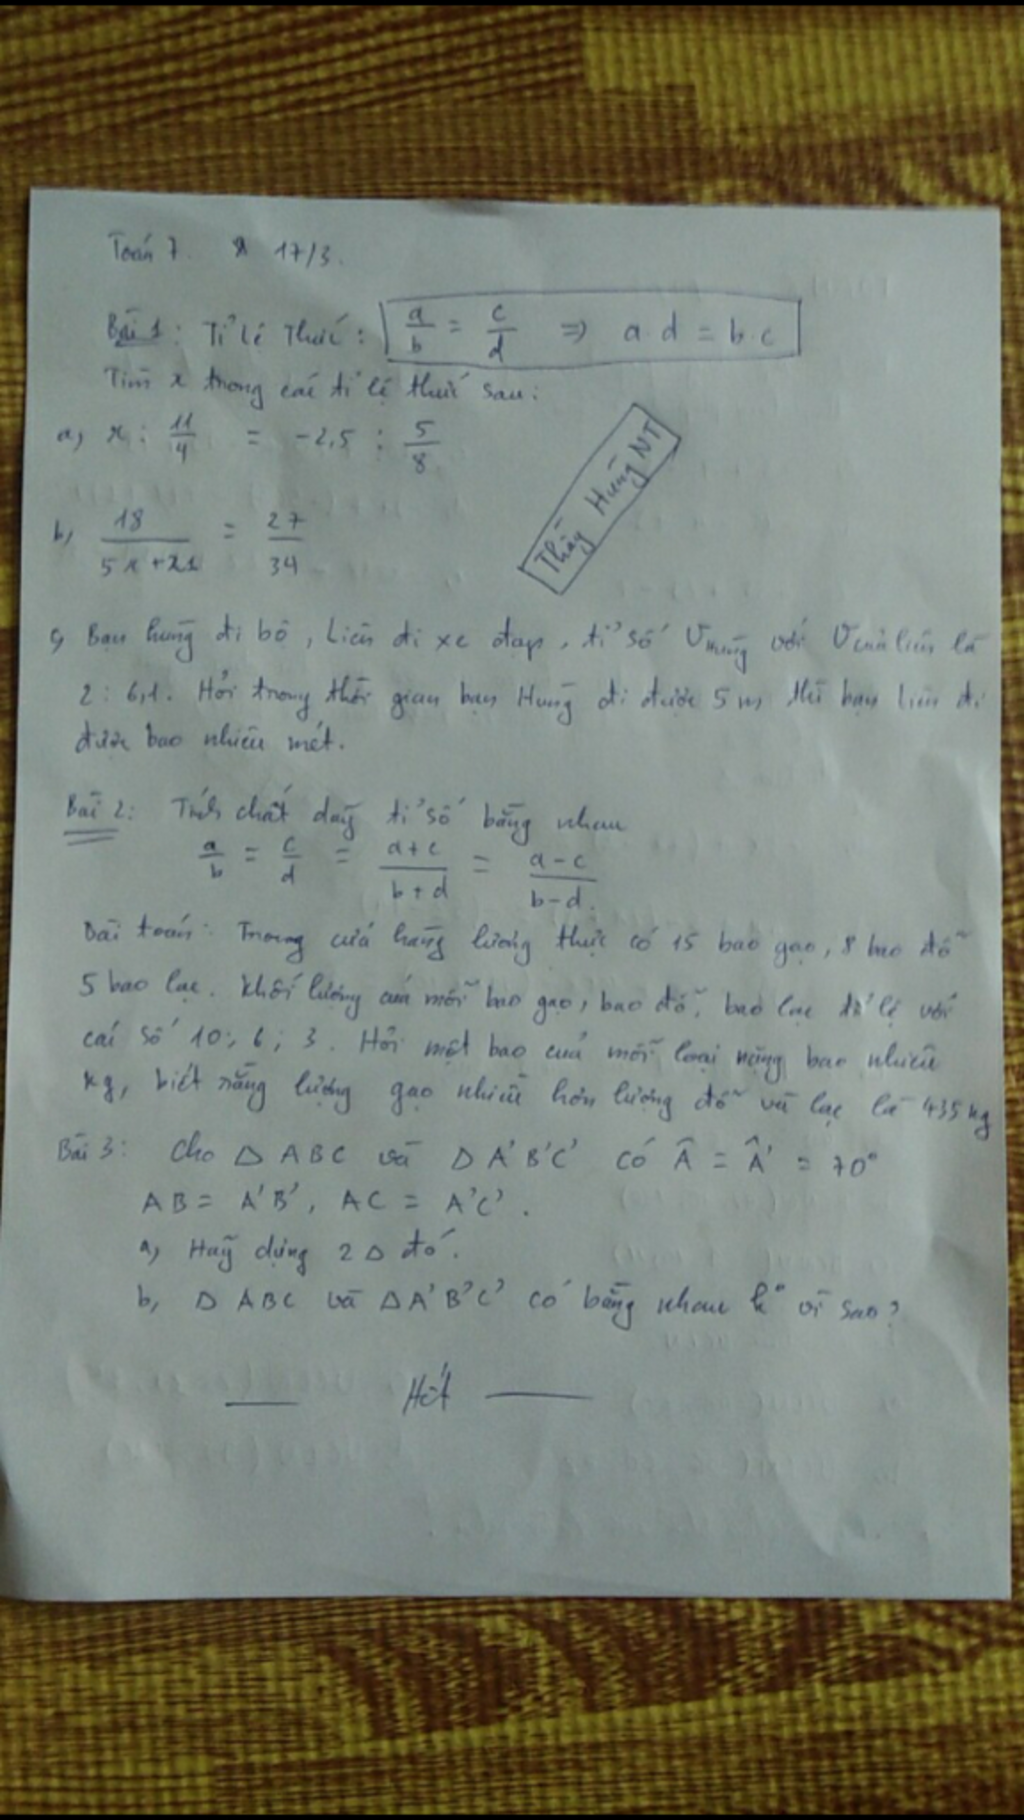 Toán 7. 17/3.
Bài 1: Tỉ lệ thức: a/b = c/d => a.d = b.c
Tìm x trong các tỉ lệ thức sau:
a, x : 11/4 = -2,5 : 5/8
Thầy Hưng NT
b, 18/(5x+21) = 27/34
c, Bạn hưng đi bộ, Liên đi xe đạp, tỉ số V Hưng với V của liên là
2 : 6,1. Hỏi trong thời gian bạn Hưng đi được 5 m, thì bạn liên đi
được bao nhiêu mét.
Bài 2: Tính chất dãy tỉ số bằng nhau
a/b = c/d = (a+c)/(b+d) = (a-c)/(b-d).
Bài toán: Trong cửa hàng lương thực có 15 bao gạo, 8 bao đỗ
5 bao lạc. Khối lượng của mỗi bao gạo, bao đỗ, bao lạc tỉ lệ với
các số 10; 6; 3. Hỏi một bao của mỗi loại nặng bao nhiêu
kg, biết rằng lượng gạo nhiều hơn lượng đỗ và lạc là 435 kg
Bài 3: Cho Δ ABC và Δ A'B'C' có Â = Â' = 70°
AB = A'B', AC = A'C'.
a, Hãy dựng 2 Δ đó.
b, Δ ABC và Δ A'B'C' có bằng nhau k° vì sao?
Hết